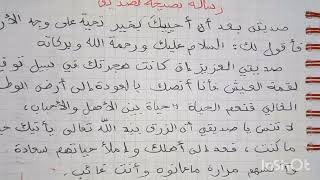 رسالة نصيحة لصديق
صديقي بعد أن أحييك بخير تحية على وجه الأرض
فأقول لك: السلام عليك ورحمة الله وبركاته
صديقي العزيز إن كانت هجرتك في سبيل توفير
لقمة العيش فأنا أنصحك بالعودة إلى أرض الوطن
الغالي فنعم الحياة حياة بين الأهل والأحباب،
لا تنس يا صديقي أن الرزق بيد الله تعالى يأتيك حيث
ما كنت، فعد إلى أهلك واملأ حياتهم سعادة
مرارة ماعانوه وأنت غائب.
InShot